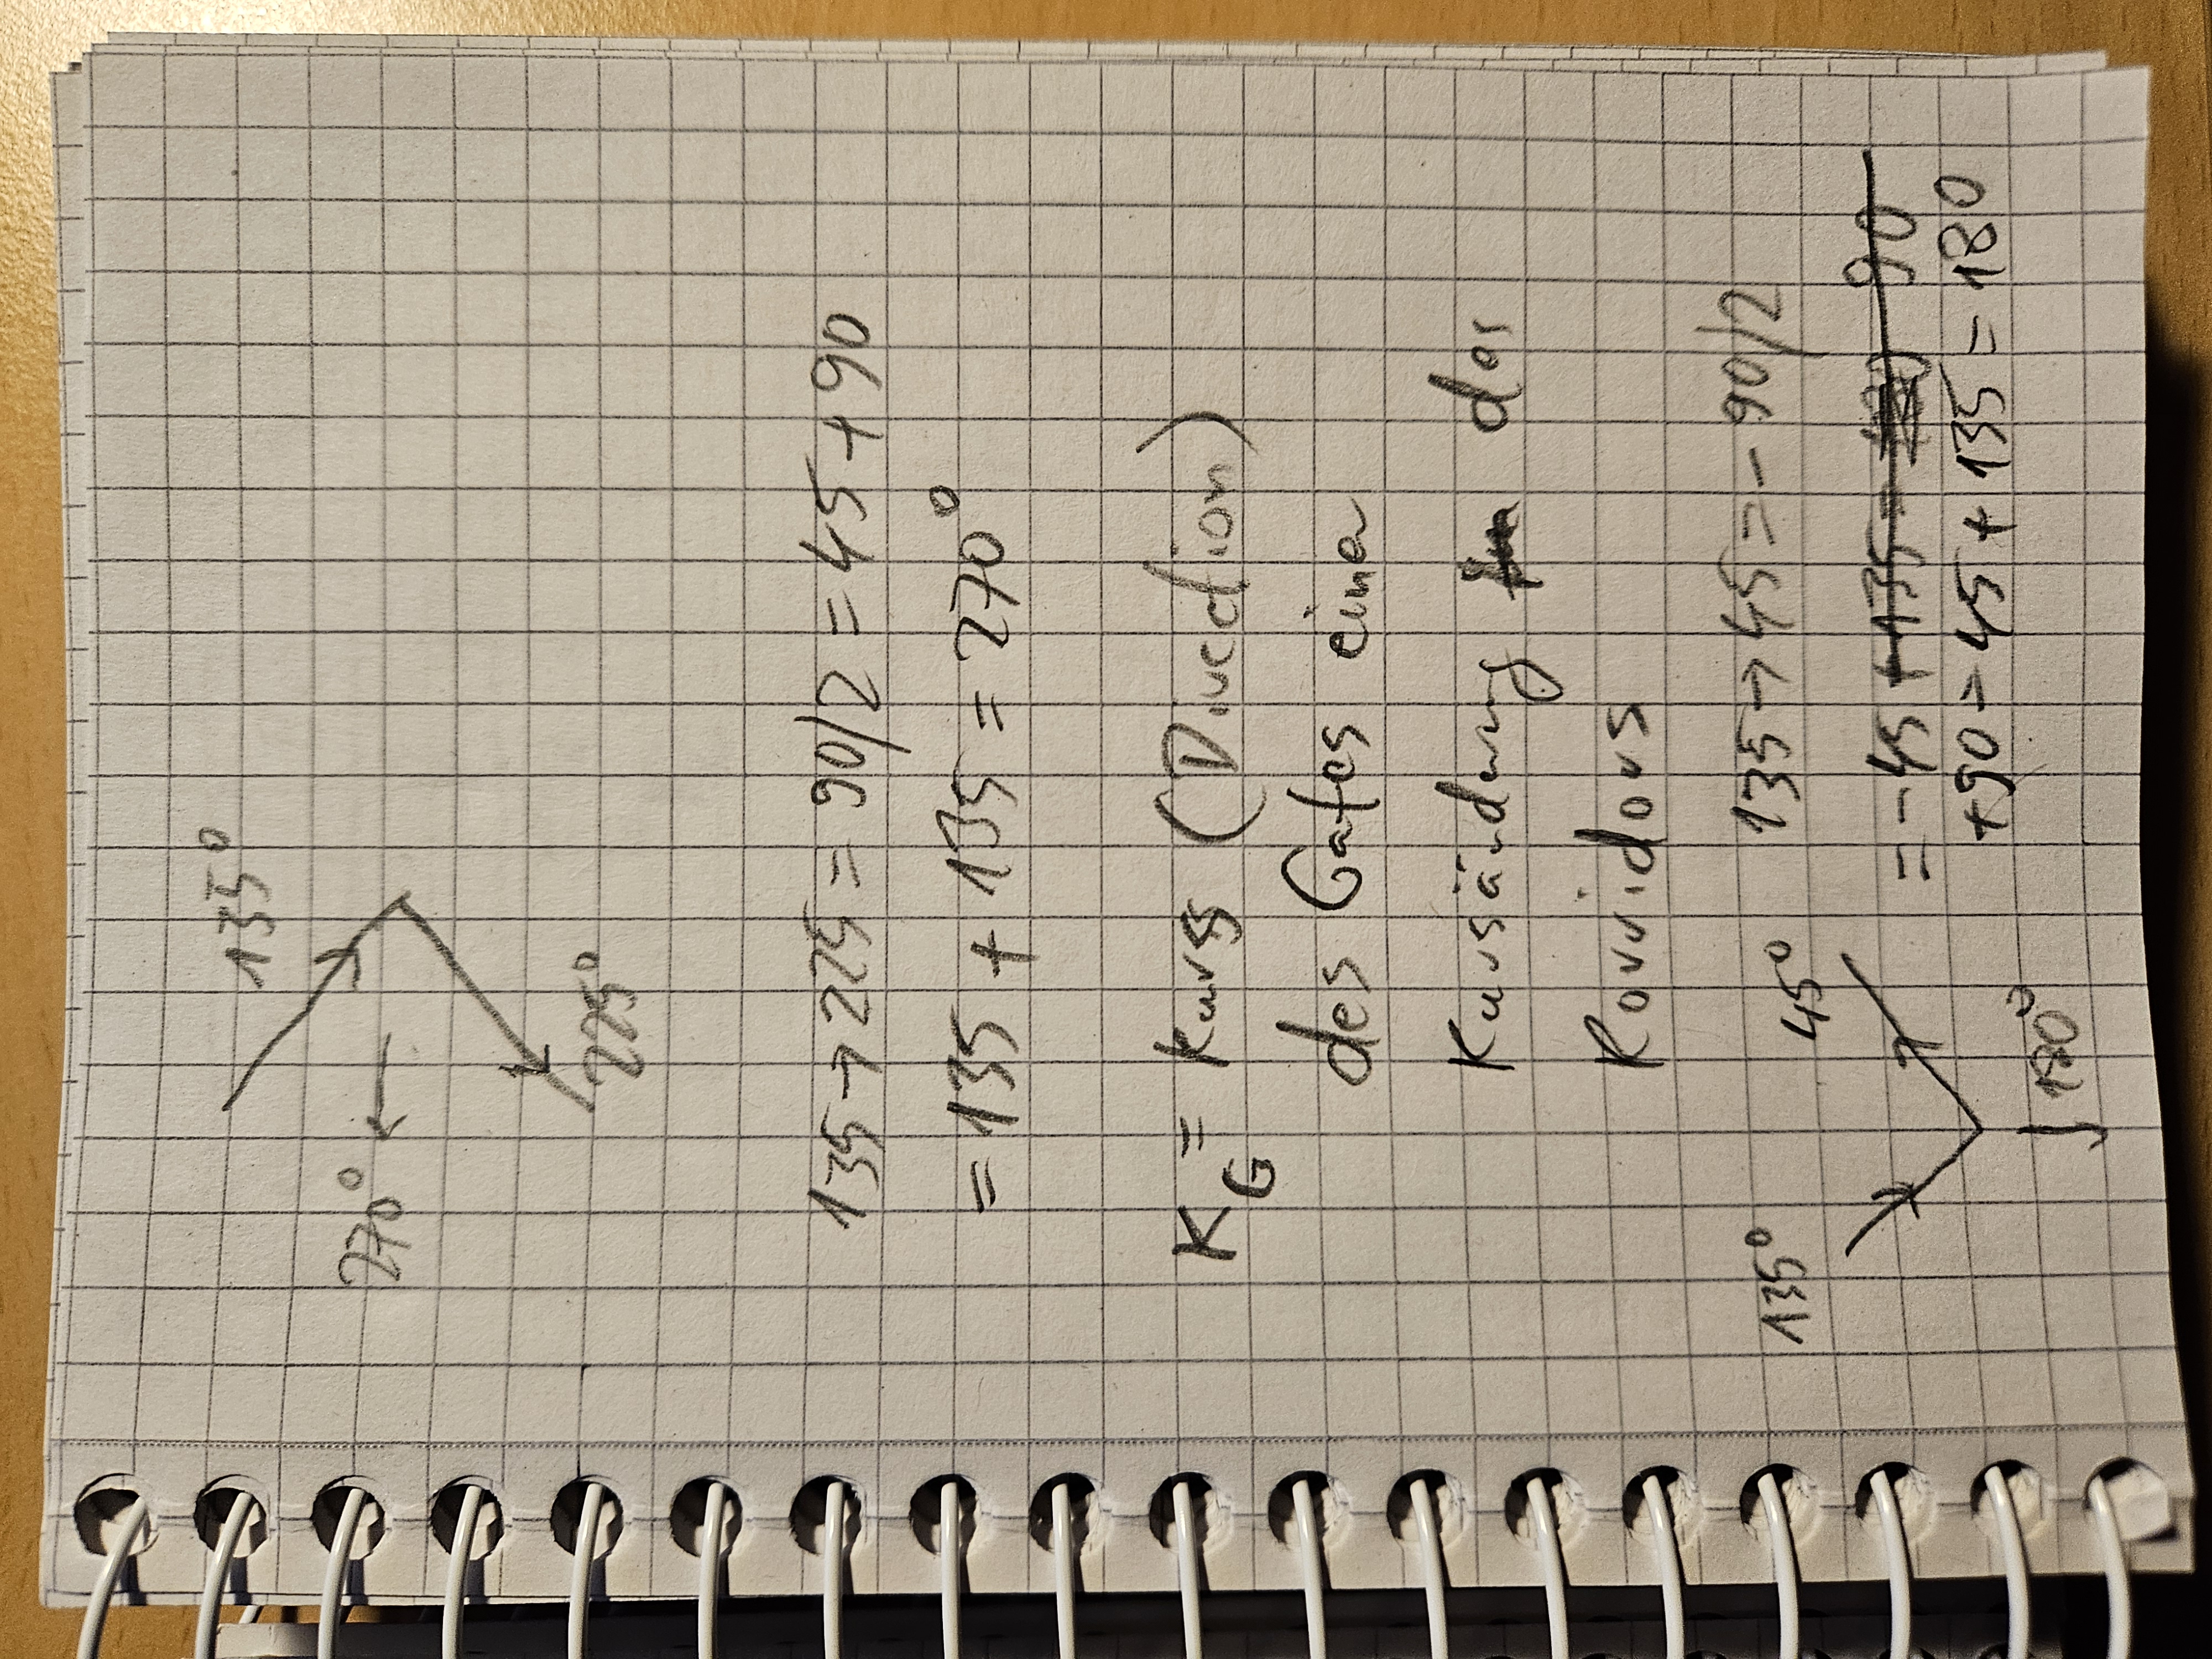 135°
270°
225°
135→225 = 90/2 = 45+90
= 135 + 135 = 270°
K_G = Kurs (Direction)
des Gates einer
Kursänderung des
Korridors
135° 45° 135→45 = - 90/2
= -45 +135 = 90
+90 = 45 + 135 = 180
180°